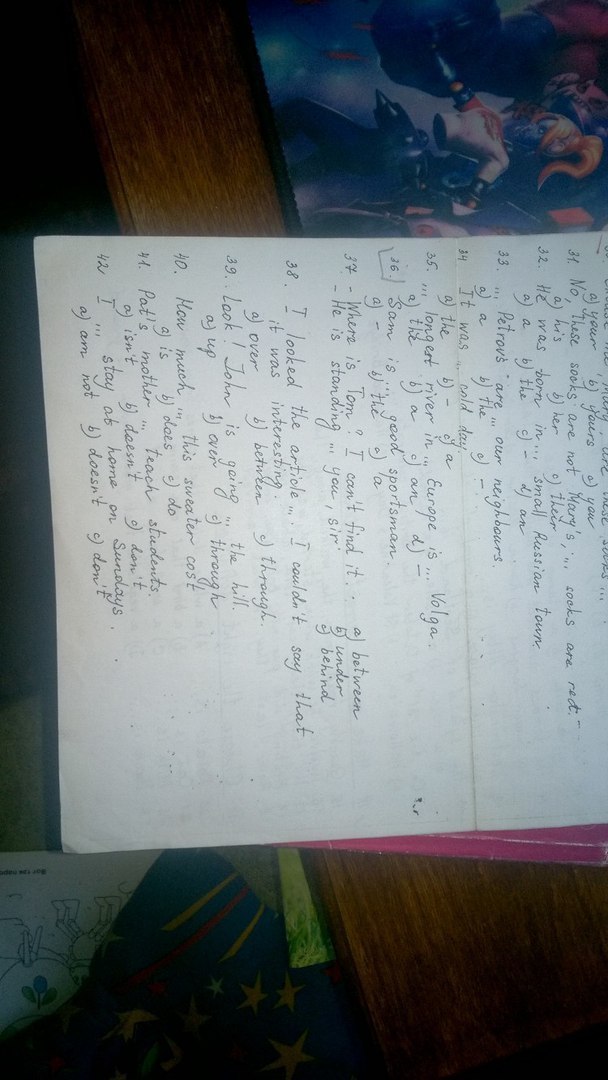 a) your b) yours c) you
31. No, these socks are not Mary's; ... socks are red.
a) his b) her c) their
32. He was born in ... small Russian town.
a) a b) the c) – d) an
33. ... Petrovs are ... our neighbours
a) a b) the c) –
34 It was ... cold day
a) the b) – c) a
35. ... longest river in ... Europe is ... Volga.
a) the b) a c) an d) –
36 Sam is ... good sportsman.
a) – b) the c) a
37 – Where is Tom? I can't find it.
– He is standing ... you, sir.
a) between
b) under
c) behind
38. I looked the article ... . I couldn't say that
it was interesting.
a) over b) between c) through
39. Look! John is going ... the hill.
a) up b) over c) through
40. How much ... this sweater cost
a) is b) does c) do
41. Pat's mother ... teach students.
a) isn't b) doesn't c) don't
42 I ... stay at home on Sundays.
a) am not b) doesn't c) don't